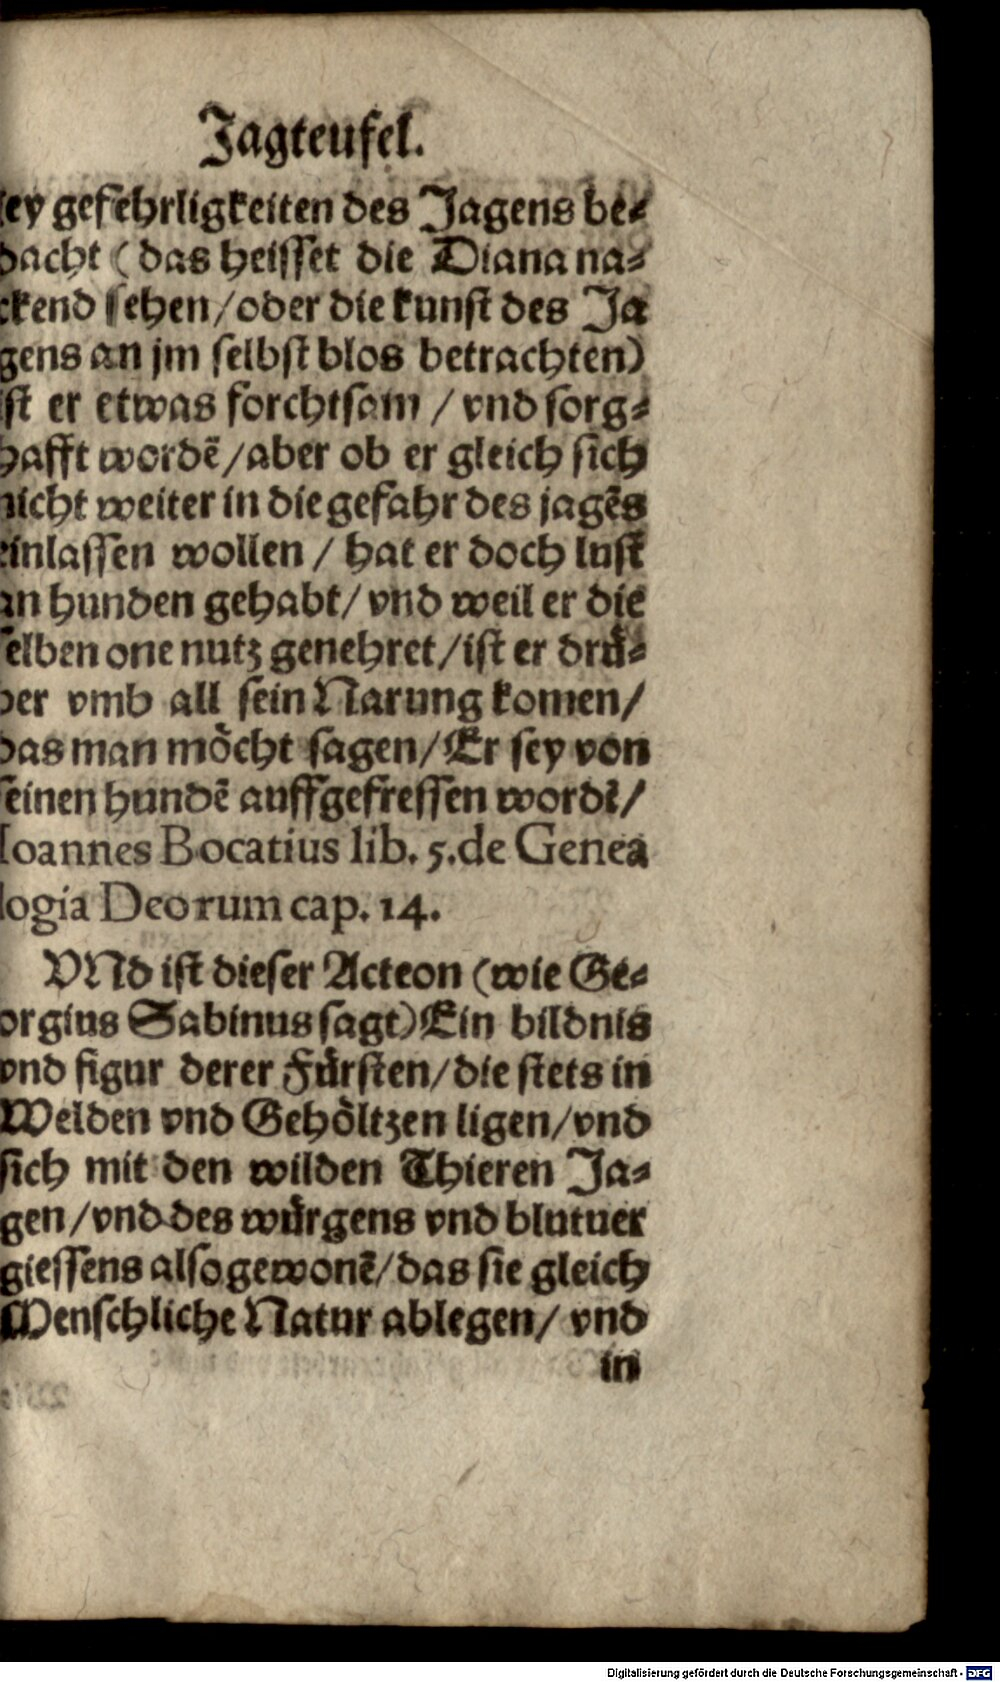 Jagteufel.
ley gefehrligkeiten des Jagens be⸗
dacht (das heisset die Diana na⸗
ckend sehen/oder die kunst des Ja
gens an jm selbst blos betrachten)
ist er etwas forchtsam / vnd sorg⸗
hafft wordē/aber ob er gleich sich
nicht weiter in die gefahr des jagēs
einlassen wollen / hat er doch lust
an hunden gehabt/ vnd weil er die
selben one nutz genehret/ist er drü⸗
ber vmb all sein Narung komen/
das man möcht sagen/Er sey von
seinen hundē auffgefressen wordē/
Ioannes Bocatius lib. 5.de Genea
logia Deorum cap. 14.
VNd ist dieser Acteon (wie Ge⸗
orgius Sabinus sagt)Ein bildnis
vnd figur derer Fürsten/die stets in
Welden vnd Gehöltzen ligen/vnd
sich mit den wilden Thieren Ja⸗
gen/vnd des würgens vnd blutuer
giessens also gewonē/das sie gleich
Menschliche Natur ablegen/ vnd
in
Digitalisierung gefördert durch die Deutsche Forschungsgemeinschaft - DFG